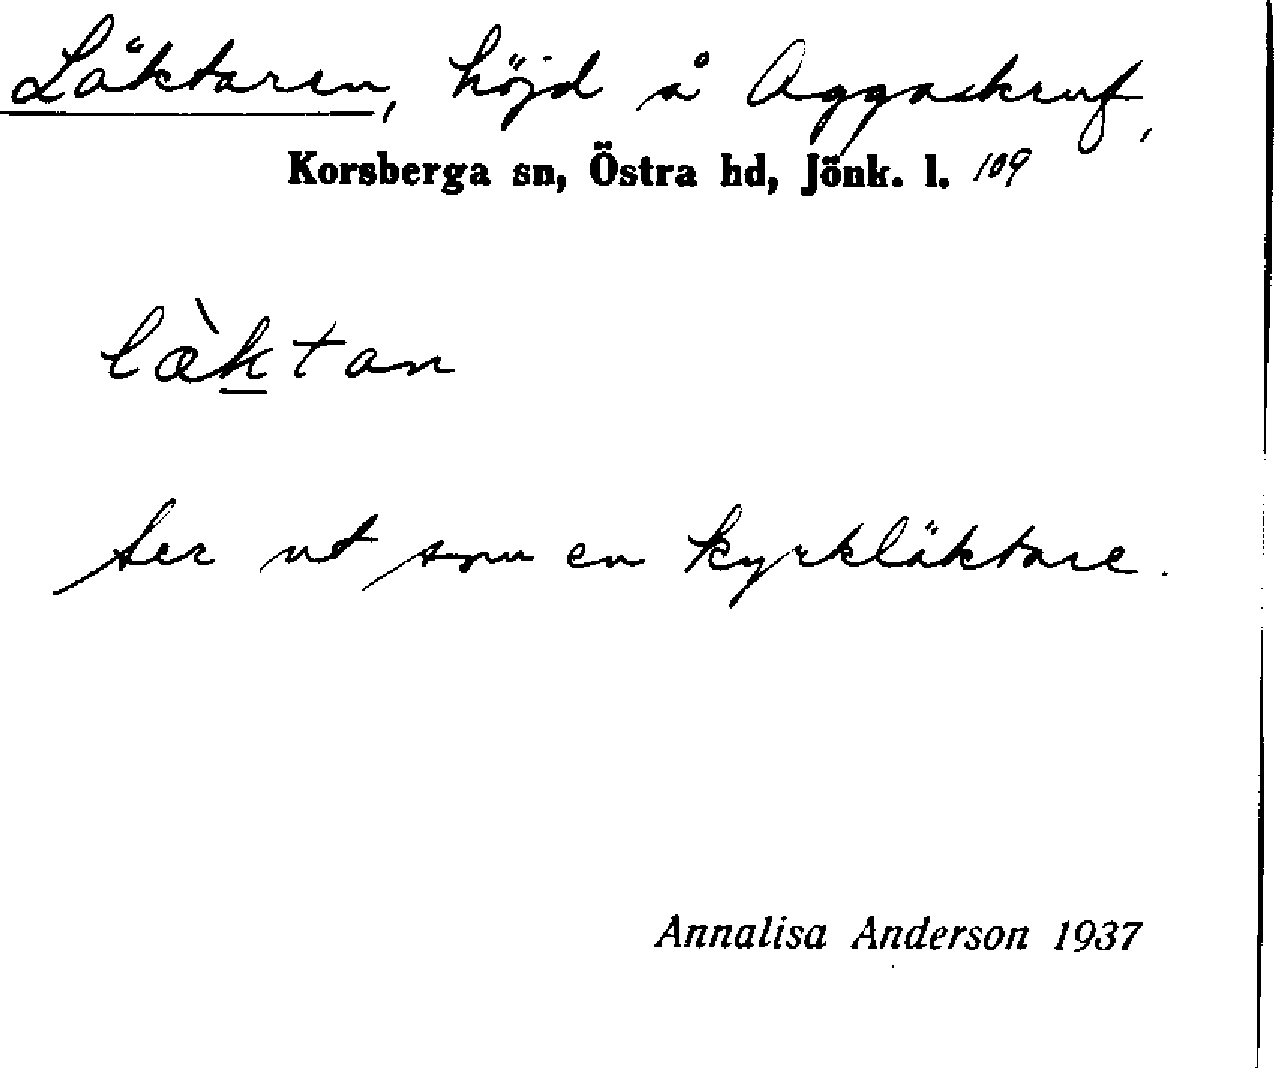 Läktaren, höjd å Aggaskruf,
Korsberga sn, Östra hd, Jönk. l. 109
læ̀ktan
Ser ut som en kyrkläktare.
Annalisa Anderson 1937